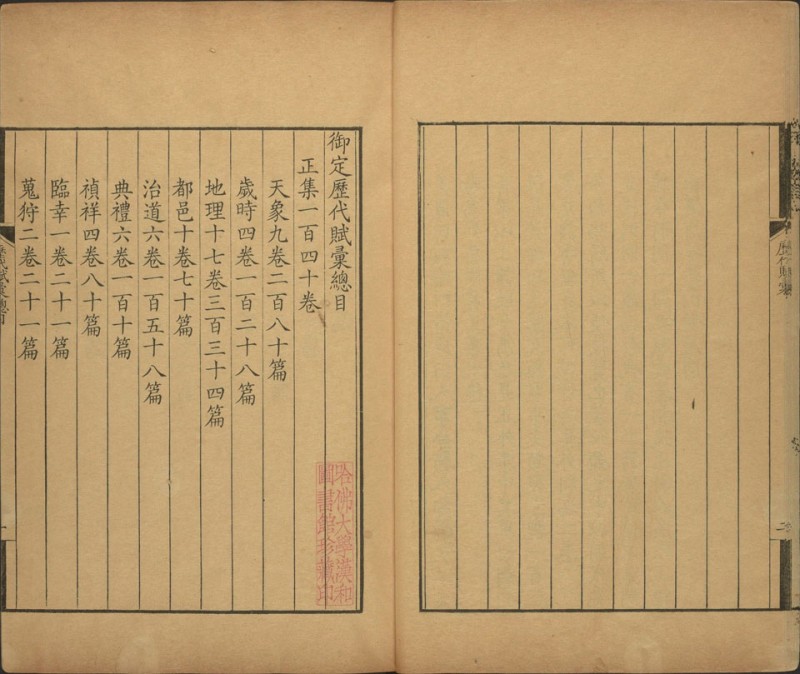 御定歷代賦彙總目
正集一百四十卷
天象九卷二百八十篇
歲時四卷一百二十八篇
地理十七卷三百三十四篇
都邑十卷七十篇
治道六卷一百五十八篇
典禮六卷一百十篇
禎祥四卷八十篇
臨幸一卷二十一篇
蒐狩二卷二十一篇
哈佛大學漢和
圖書館珍藏印